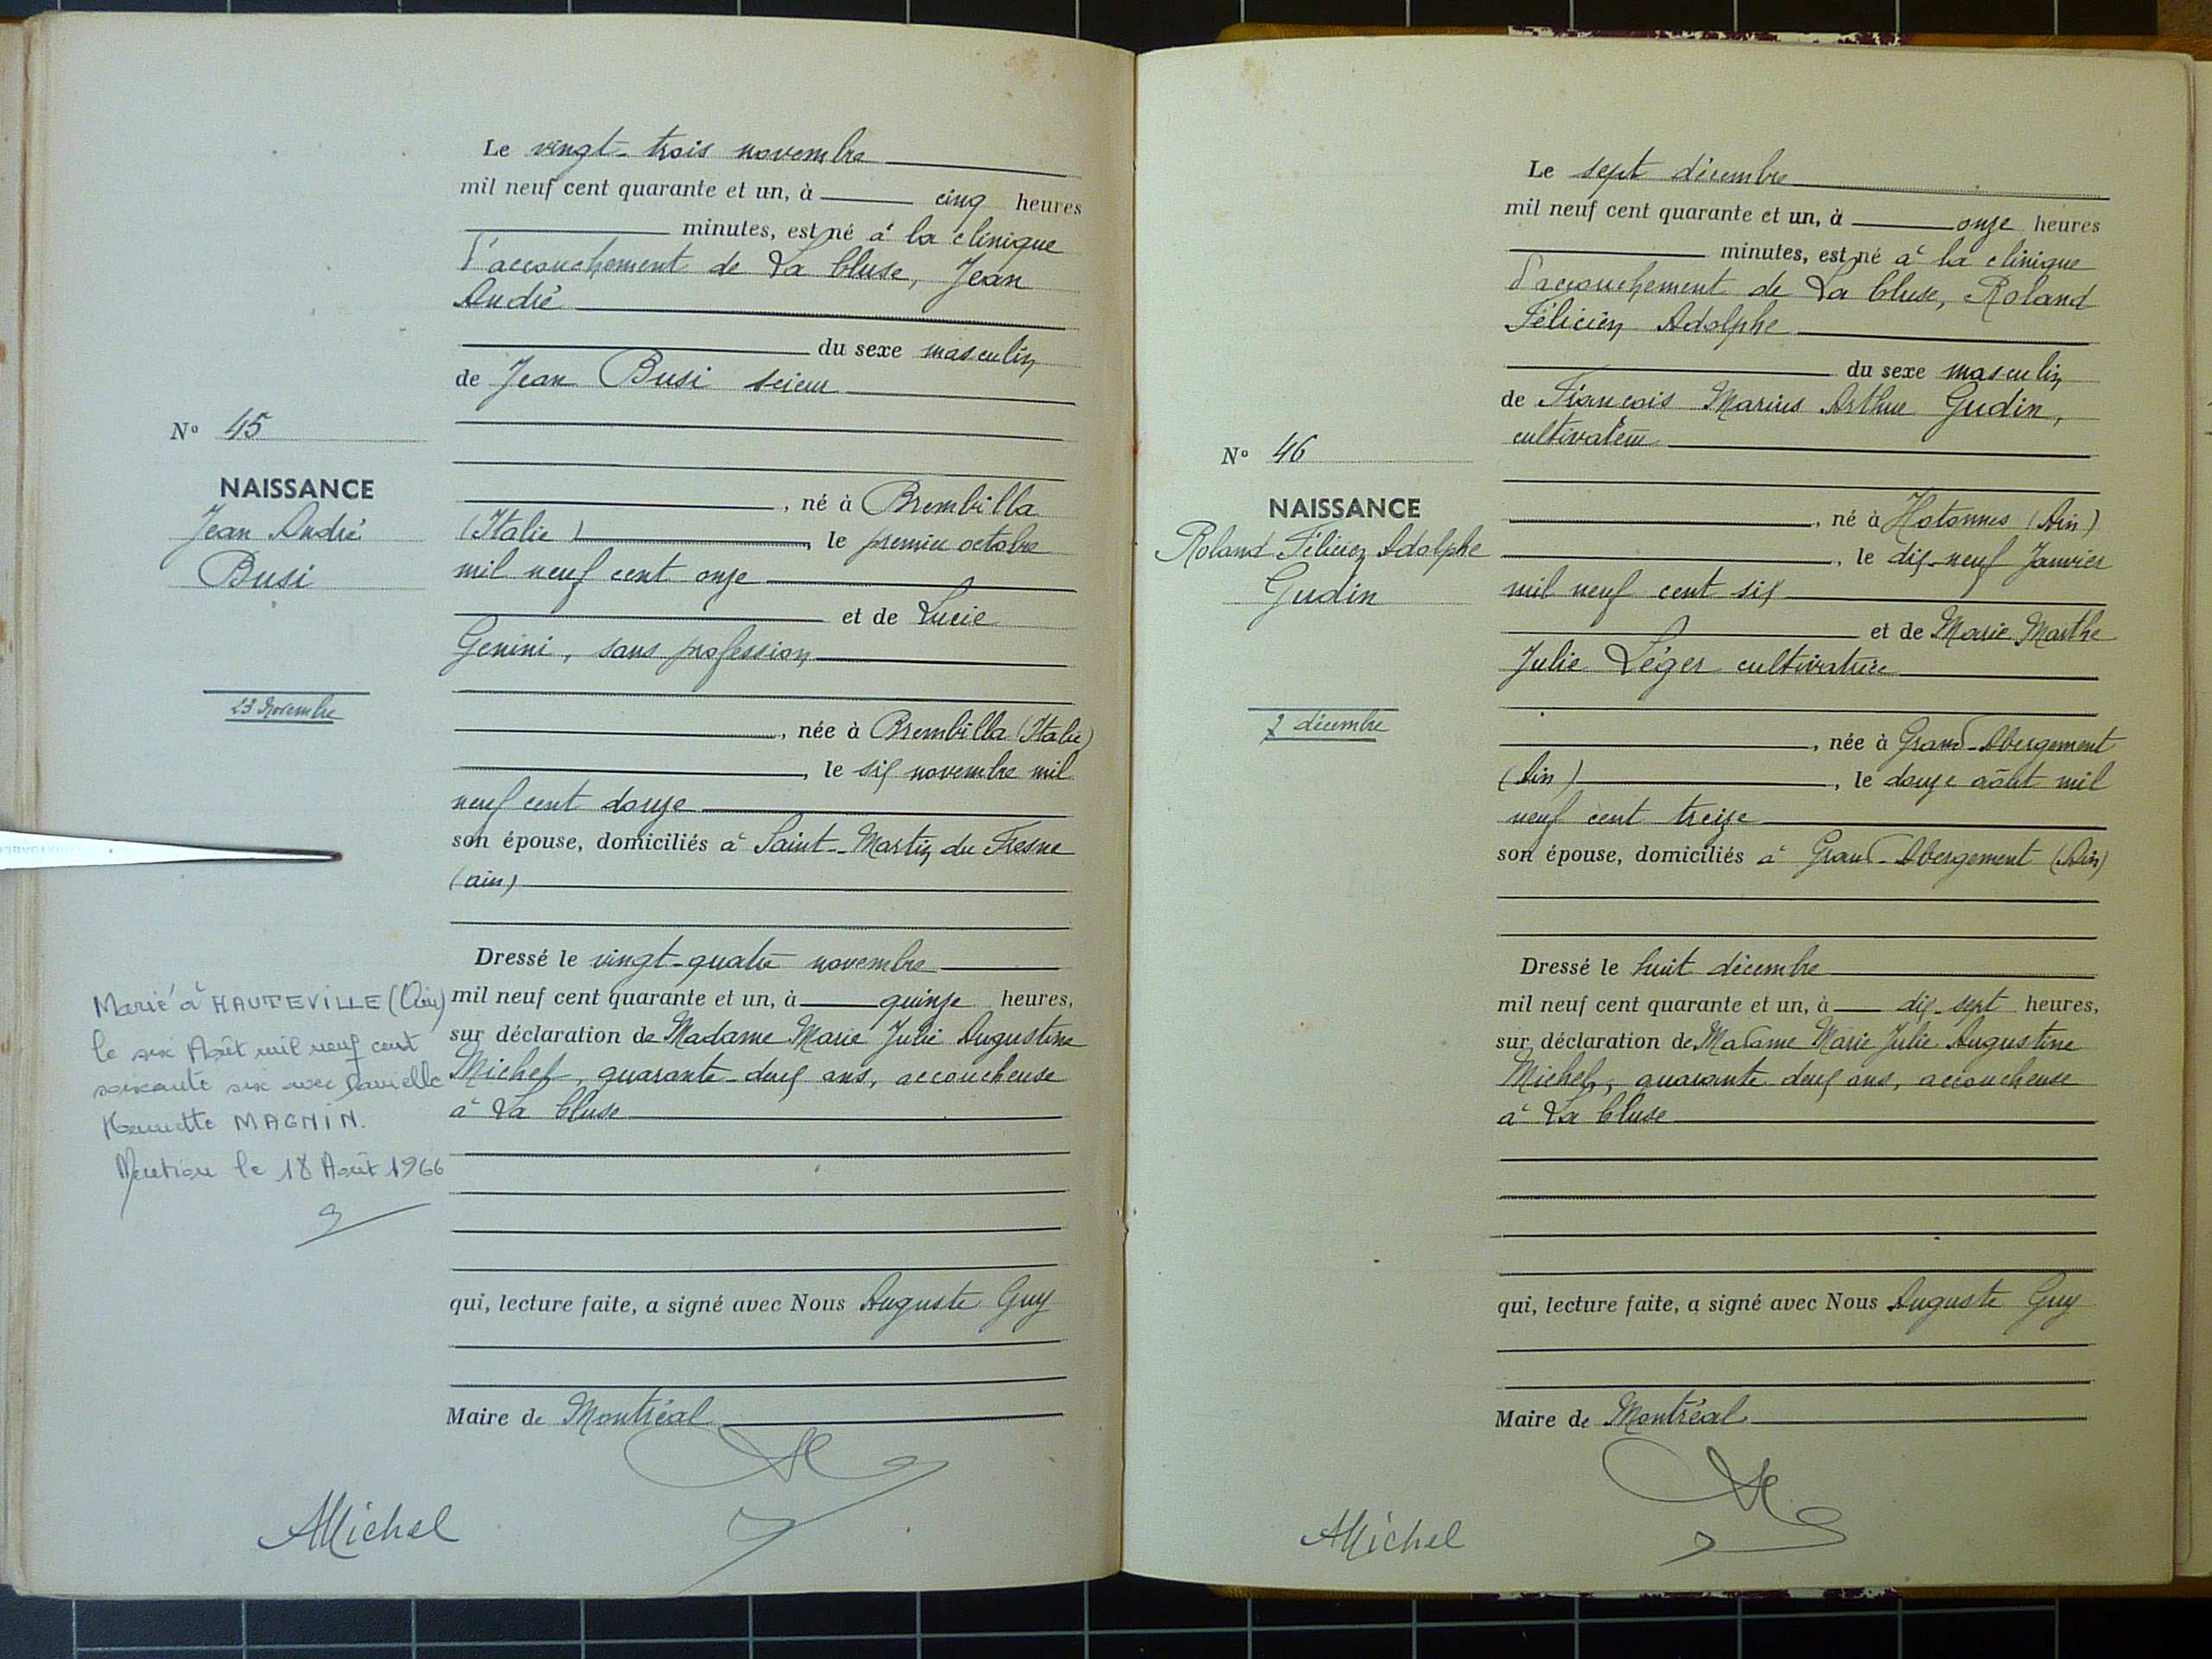 Le vingt-trois novembre
mil neuf cent quarante et un, à cinq heures
minutes, est né à la clinique
d'accouchement de La Cluse, Jean
André
du sexe masculin
de Jean Busi scieur
N° 45
NAISSANCE
Jean André
Busi
, né à Brembilla
(Italie), le premier octobre
mil neuf cent onze
et de Lucie
Genini, sans profession
23 Novembre
, née à Brembilla (Italie)
, le six novembre mil
neuf cent douze
son épouse, domiciliés à Saint-Martin du Fresne
(ain)
Dressé le vingt-quatre novembre
mil neuf cent quarante et un, à quinze heures,
sur déclaration de Madame Marie Julie Augustine
Michel, quarante-deux ans, accoucheuse
à La Cluse
Marié à HAUTEVILLE (Ain)
le six Août mil neuf cent
soixante six avec Danielle
Henriette MAGNIN.
Mention le 18 Août 1966
qui, lecture faite, a signé avec Nous Auguste Guy
Maire de Montréal
AMichel
Le sept décembre
mil neuf cent quarante et un, à onze heures
minutes, est né à la clinique
d'accouchement de La Cluse, Roland
Félicien Adolphe
du sexe masculin
de François Marius Arthur Gudin,
cultivateur
N° 46
NAISSANCE
Roland Félicien Adolphe
Gudin
, né à Hotonnes (Ain)
, le dix-neuf Janvier
mil neuf cent six
et de Marie Marthe
Julie Léger cultivatrice
7 décembre
, née à Grand-Abergement
(Ain), le douze août mil
neuf cent treize
son épouse, domiciliés à Grand-Abergement (Ain)
Dressé le huit décembre
mil neuf cent quarante et un, à dix-sept heures,
sur déclaration de Madame Marie Julie Augustine
Michel, quarante deux ans, accoucheuse
à La Cluse
qui, lecture faite, a signé avec Nous Auguste Guy
Maire de Montréal
AMichel